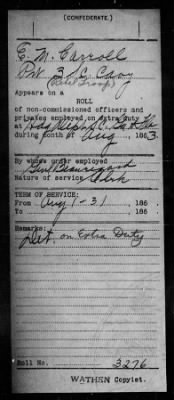 (CONFEDERATE.)
E. M. Carroll
Pvt 3 SC Cavy
(Rebel Troop)
Appears on a
ROLL
of non-commissioned officers and
privates employed on extra duty
at Hdqrs Dept S.C. Ga & Fla
during month of Aug 1863.
By whom order employed
Genl Beauregard
Nature of service Clerk
TERM OF SERVICE:
From Aug 1-31 186 .
To 186 .
Remarks:
Det. on Extra Duty
Roll No. 3276
WATHEN Copyist.